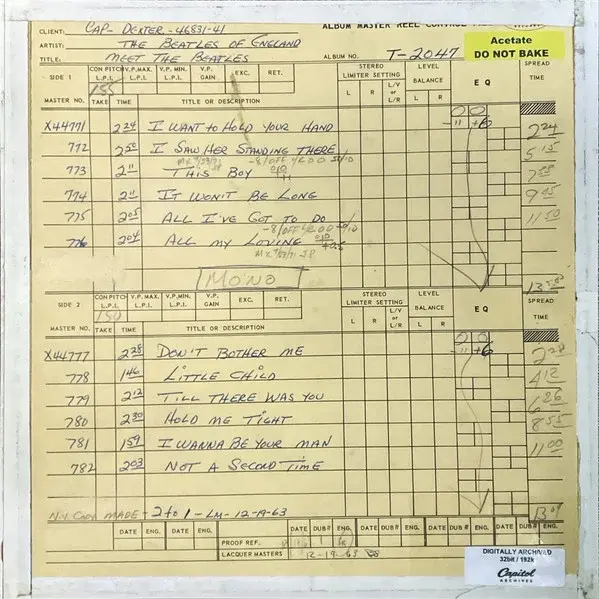 CLIENT: CAP- DEXTER -46831-41 ALBUM MASTER REEL CONTROL
ARTIST: THE BEATLES OF ENGLAND
TITLE: MEET THE BEATLES ALBUM NO. T-2047
Acetate
DO NOT BAKE
SIDE 1 CON PITCH L.P.I. V.P. MAX. L.P.I. V.P. MIN. L.P.I. V.P. GAIN EXC. RET. STEREO LIMITER SETTING LEVEL BALANCE EQ SPREAD TIME
155
MASTER NO. TAKE TIME TITLE OR DESCRIPTION L R L/V or L/R L R
-11 +6
X44771 2 24 I WANT to HOLD YOUR HAND 2 24
772 2 50 I SAW HER STANDING THERE 5 15
773 2 11 THIS BOY
774 2 11 IT WON'T BE LONG
775 2 05 ALL I'VE GOT TO DO 11 50
776 2 04 ALL MY LOVING
MONO
SIDE 2 CON PITCH L.P.I. V.P. MAX. L.P.I. V.P. MIN. L.P.I. V.P. GAIN EXC. RET. STEREO LIMITER SETTING LEVEL BALANCE EQ SPREAD TIME
150
MASTER NO. TAKE TIME TITLE OR DESCRIPTION L R L/V or L/R L R
-11 +6
X44777 2 28 DON'T BOTHER ME 2 28
778 1 46 LITTLE CHILD 4 12
779 2 12 TILL THERE WAS YOU 6 26
780 2 30 HOLD ME TIGHT 8 55
781 1 59 I WANNA BE YOUR MAN 11 00
782 2 03 NOT A SECOND TIME
MADE - 2 to 1 - LM - 12-19-63
DATE ENG. DATE ENG. DATE ENG. DATE DUB# ENG. DATE DUB# ENG.
PROOF REF.
LACQUER MASTERS 12-19-63
DIGITALLY ARCHIVED
32bit / 192k
Capitol
ARCHIVES